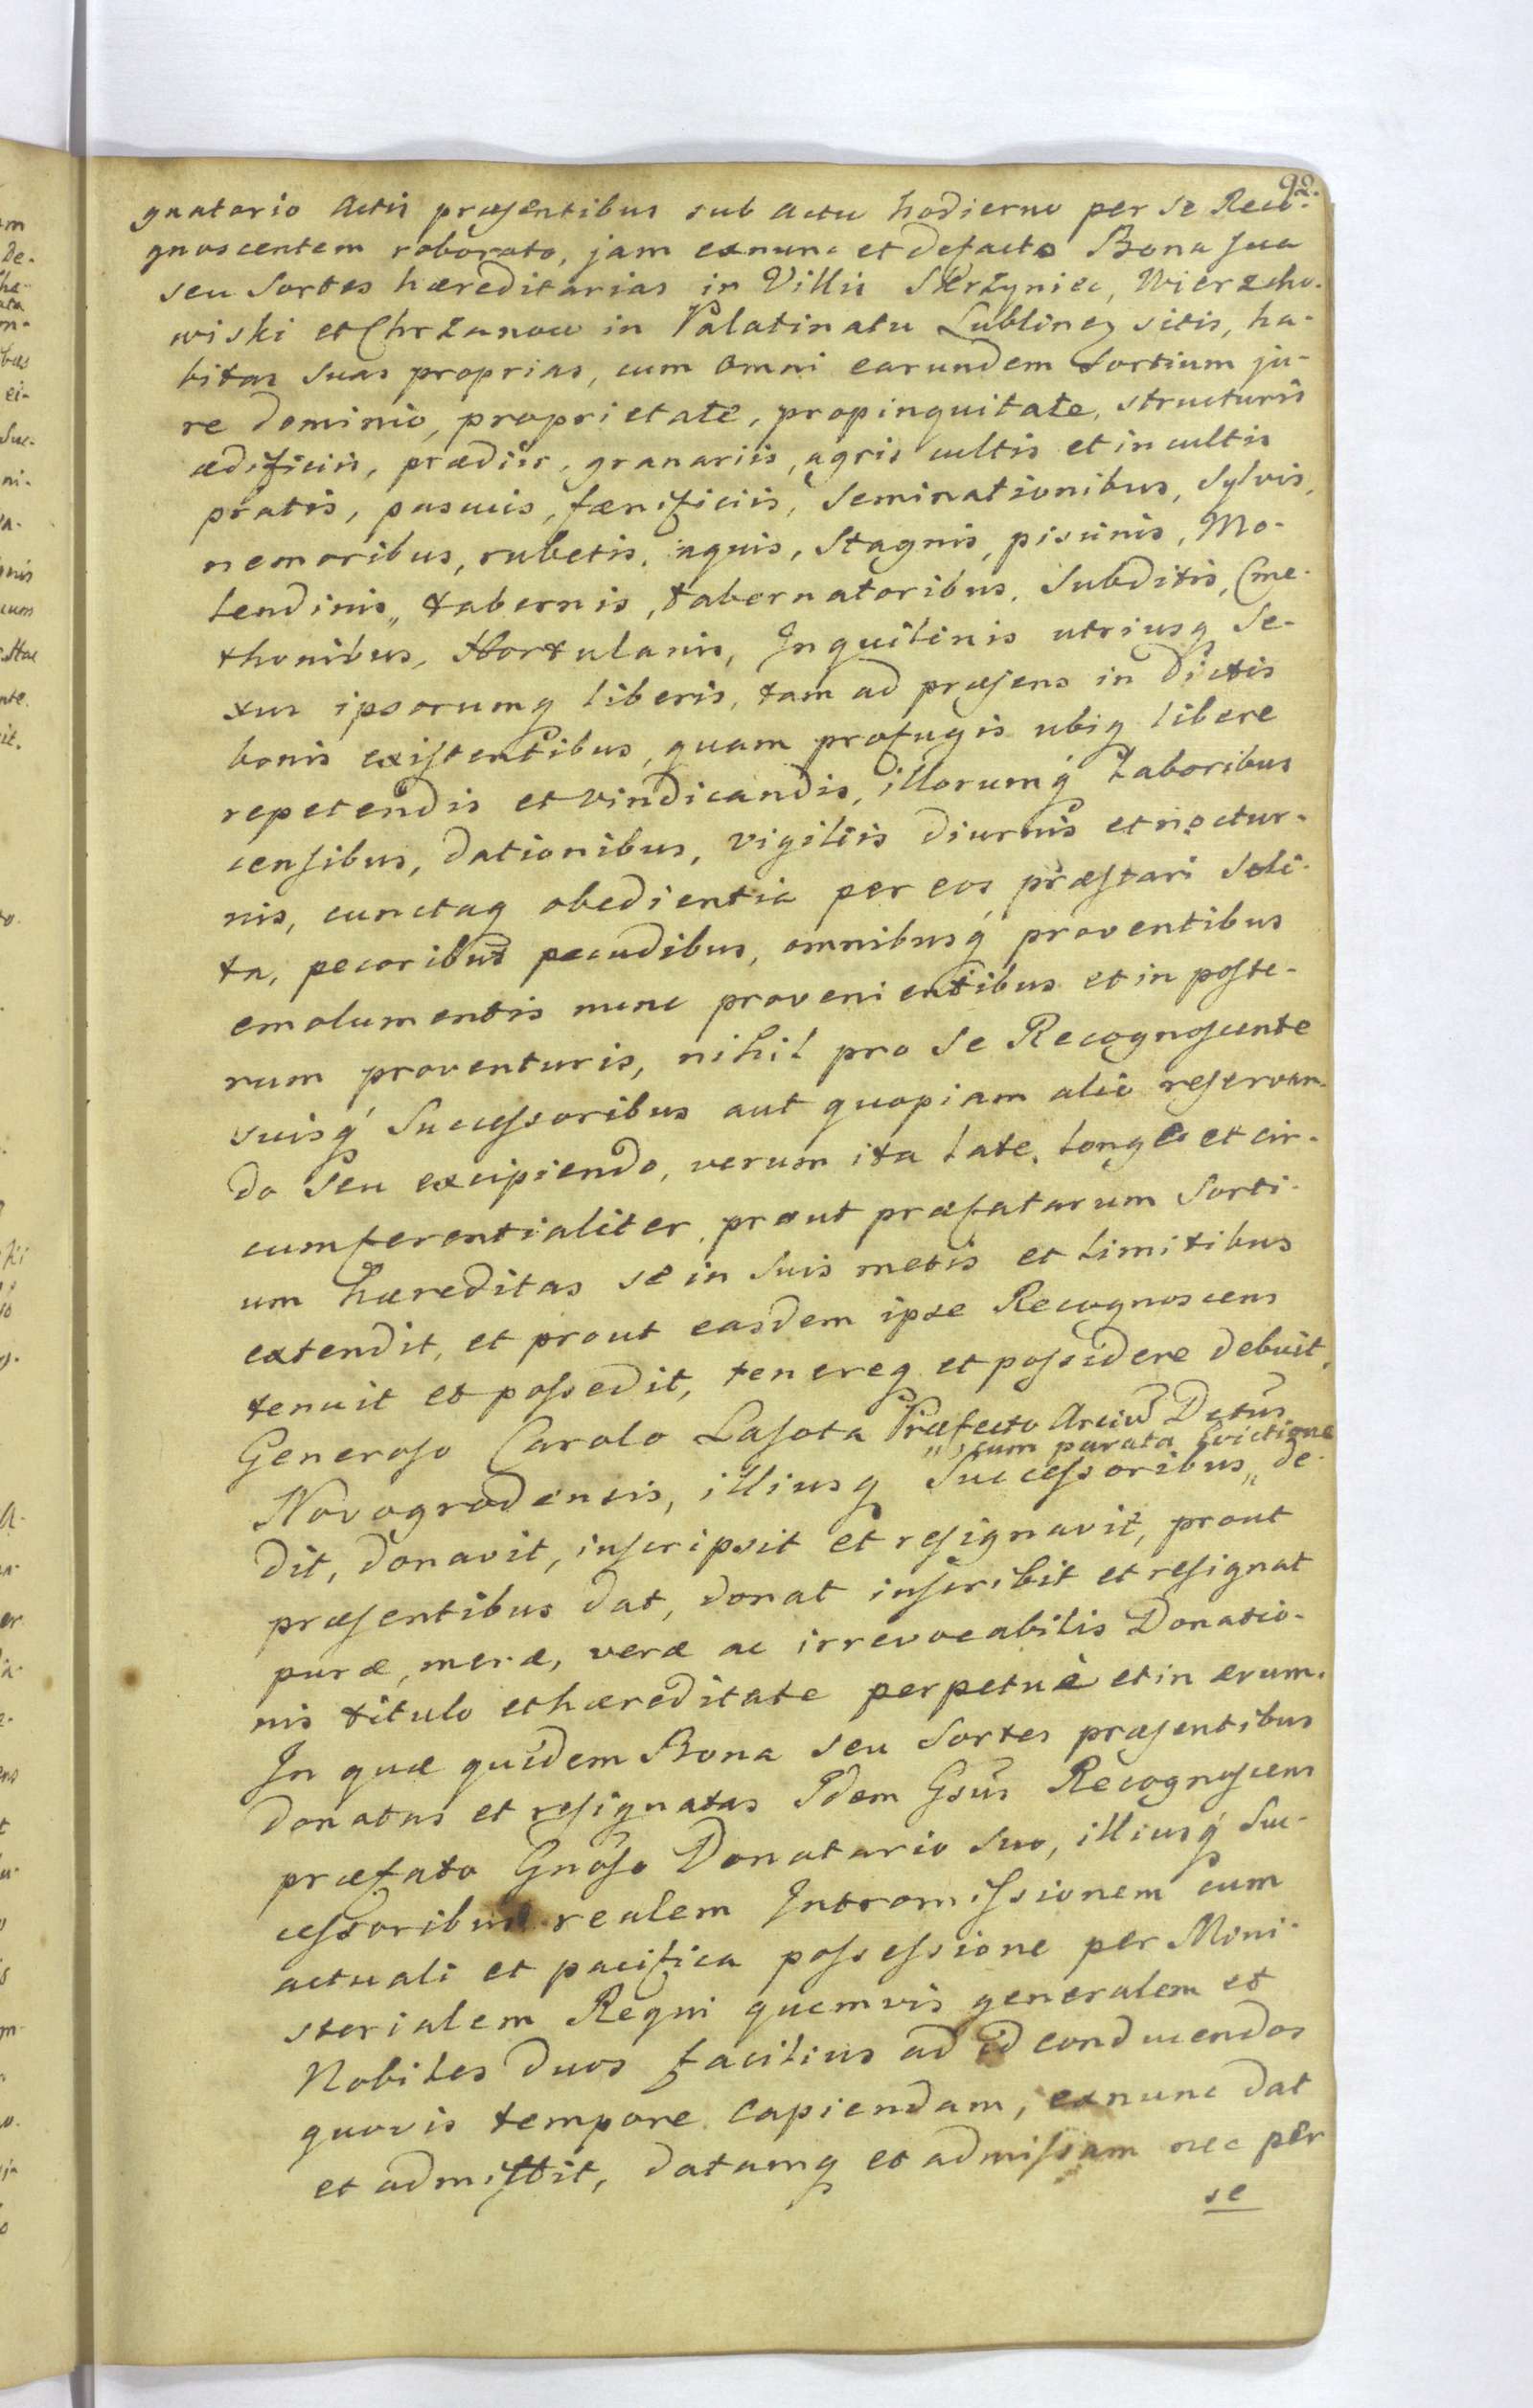 92.
gnatorio Actis præsentibus sub actu hodierno per se Reco-
gnoscentem roborato, jam exnunc et defacto Bona sua
seu Sortes hæreditarias in Villis Skrzyniec, Wierzcho-
wiski et Chrzanow in Palatinatu Lublineñ sitis, ha-
bitas suas proprias, cum omni earundem Sortium ju-
re dominio, proprietate, propinquitate, structuris
ædificiis, prædiis, granariis, agris cultis et incultis
pratis, pascuis, fænificiis, Seminationibus, Sylvis,
nemoribus, rubetis, aquis, Stagnis, piscinis, Mo-
lendinis, tabernis, tabernatoribus, Subditis, Cme-
thonibus, Hortulanis, Inquilinis utriusq Se-
xus ipsorumq liberis, tam ad præsens in dictis
bonis existentibus, quam profugis ubiq libere
repetendis et vindicandis, illorumq́ Laboribus
censibus, dationibus, vigiliis diurnis et noctur-
nis, cunctaq obedientia per eos præstari soli-
ta, pecoribus pecudibus, omnibusq́ proventibus
emolumentis nunc provenientibus et in poste-
rum proventuris, nihil pro se Recognoscente
suisq́ Successoribus aut quopiam alio reservan-
do seu excipiendo, verum ita late, longe et cir-
cumferentialiter, prout præfatarum Sorti-
um hæreditas se in suis metis et limitibus
extendit, et prout easdem ipse Recognoscens
tenuit et possedit, tenereq et possidere debuit,
Generoso Carolo Lasota Præfecto Arciū Dctūs
" cum parata Evictione
Novogrodensis, illiusq Successoribus " de-
dit, donavit, inscripsit et resignavit, prout
præsentibus dat, donat inscribit et resignat
puræ, meræ, veræ ac irrevocabilis Donatio-
nis titulo et hæreditate perpetuè et in ævum.
In quæ quidem Bona seu Sortes præsentibus
donatas et resignatas Idem Gsūs Recognoscens
præfato Gnōso Donatario suo, illiusq́ Suc-
cessoribus realem Intromissionem cum
actuali et pacifica possessione per Mini-
sterialem Regni quemvis generalem et
Nobiles duos facilius ad id conducendos
quovis tempore capiendam, exnunc dat
et admittit, datamq et admissam nec per
se